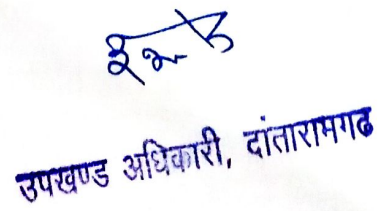 उपखण्ड अधिकारी, दांतारामगढ